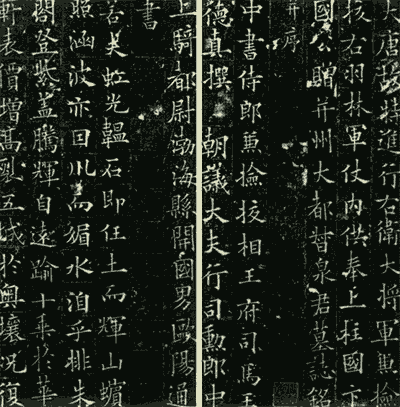 大唐故特進行右衛大將軍兼檢
校右羽林軍仗內供奉上柱國卞
國公贈并州大都督泉君墓誌銘
并序
中書侍郎兼檢校相王府司馬王
德真撰 朝議大夫行司勳郎中
上騎都尉渤海縣開國男歐陽通
書
若夫虹光韞石即任土而輝山蠙
照涵波亦因川而媚水洎乎排朱
閣登紫蓋騰輝自遠踰十乘於華
軒表價增高裂五城於奧壤況復